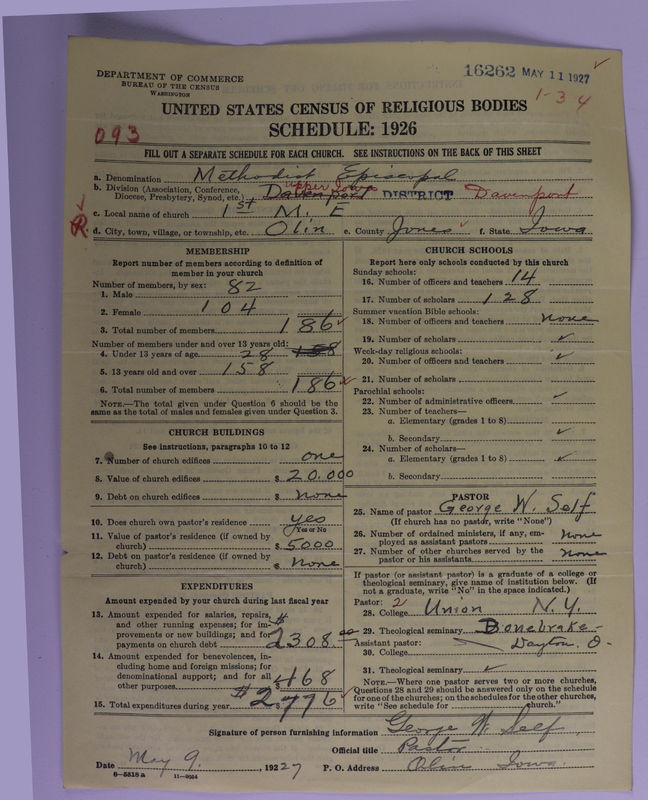 16262 MAY 11 1927
DEPARTMENT OF COMMERCE
BUREAU OF THE CENSUS
WASHINGTON
1-3 4
UNITED STATES CENSUS OF RELIGIOUS BODIES
093
SCHEDULE: 1926
FILL OUT A SEPARATE SCHEDULE FOR EACH CHURCH. SEE INSTRUCTIONS ON THE BACK OF THIS SHEET
a. Denomination Methodist Episcopal
b. Division (Association, Conference, Diocese, Presbytery, Synod, etc.) Davenport Upper Iowa DISTRICT Davenport
c. Local name of church 1st M. E
R. d. City, town, village, or township, etc. Olin e. County Jones f. State Iowa
MEMBERSHIP
Report number of members according to definition of
member in your church
Number of members, by sex:
1. Male 82
2. Female 104
3. Total number of members 186
Number of members under and over 13 years old:
4. Under 13 years of age 28 158
5. 13 years old and over 158
6. Total number of members 186
NOTE.—The total given under Question 6 should be the
same as the total of males and females given under Question 3.
CHURCH BUILDINGS
See instructions, paragraphs 10 to 12
7. Number of church edifices one
8. Value of church edifices $ 20.000
9. Debt on church edifices $ none
10. Does church own pastor's residence yes
Yes or No
11. Value of pastor's residence (if owned by
church) $ 5000
12. Debt on pastor's residence (if owned by
church) $ None
EXPENDITURES
Amount expended by your church during last fiscal year
13. Amount expended for salaries, repairs,
and other running expenses; for im-
provements or new buildings; and for
payments on church debt $ 2308.00
14. Amount expended for benevolences, in-
cluding home and foreign missions; for
denominational support; and for all
other purposes $ 468
15. Total expenditures during year $ 2776
CHURCH SCHOOLS
Report here only schools conducted by this church
Sunday schools:
16. Number of officers and teachers 14
17. Number of scholars 128
Summer vacation Bible schools:
18. Number of officers and teachers none
19. Number of scholars
Week-day religious schools:
20. Number of officers and teachers
21. Number of scholars
Parochial schools:
22. Number of administrative officers
23. Number of teachers—
a. Elementary (grades 1 to 8)
b. Secondary
24. Number of scholars—
a. Elementary (grades 1 to 8)
b. Secondary
PASTOR
25. Name of pastor George W. Self
(If church has no pastor, write "None")
26. Number of ordained ministers, if any, em-
ployed as assistant pastors none
27. Number of other churches served by the
pastor or his assistants none
If pastor (or assistant pastor) is a graduate of a college or
theological seminary, give name of institution below. (If
not a graduate, write "No" in the space indicated.)
Pastor: 2
28. College Union N.Y.
29. Theological seminary Bonebrake-
Assistant pastor: Dayton, O-
30. College
31. Theological seminary
NOTE.—Where one pastor serves two or more churches,
Questions 28 and 29 should be answered only on the schedule
for one of the churches; on the schedules for the other churches,
write "See schedule for church."
Signature of person furnishing information George W. Self
Official title Pastor
Date May 9. , 1927 P. O. Address Olin Iowa.
8-5318 a 11-9624